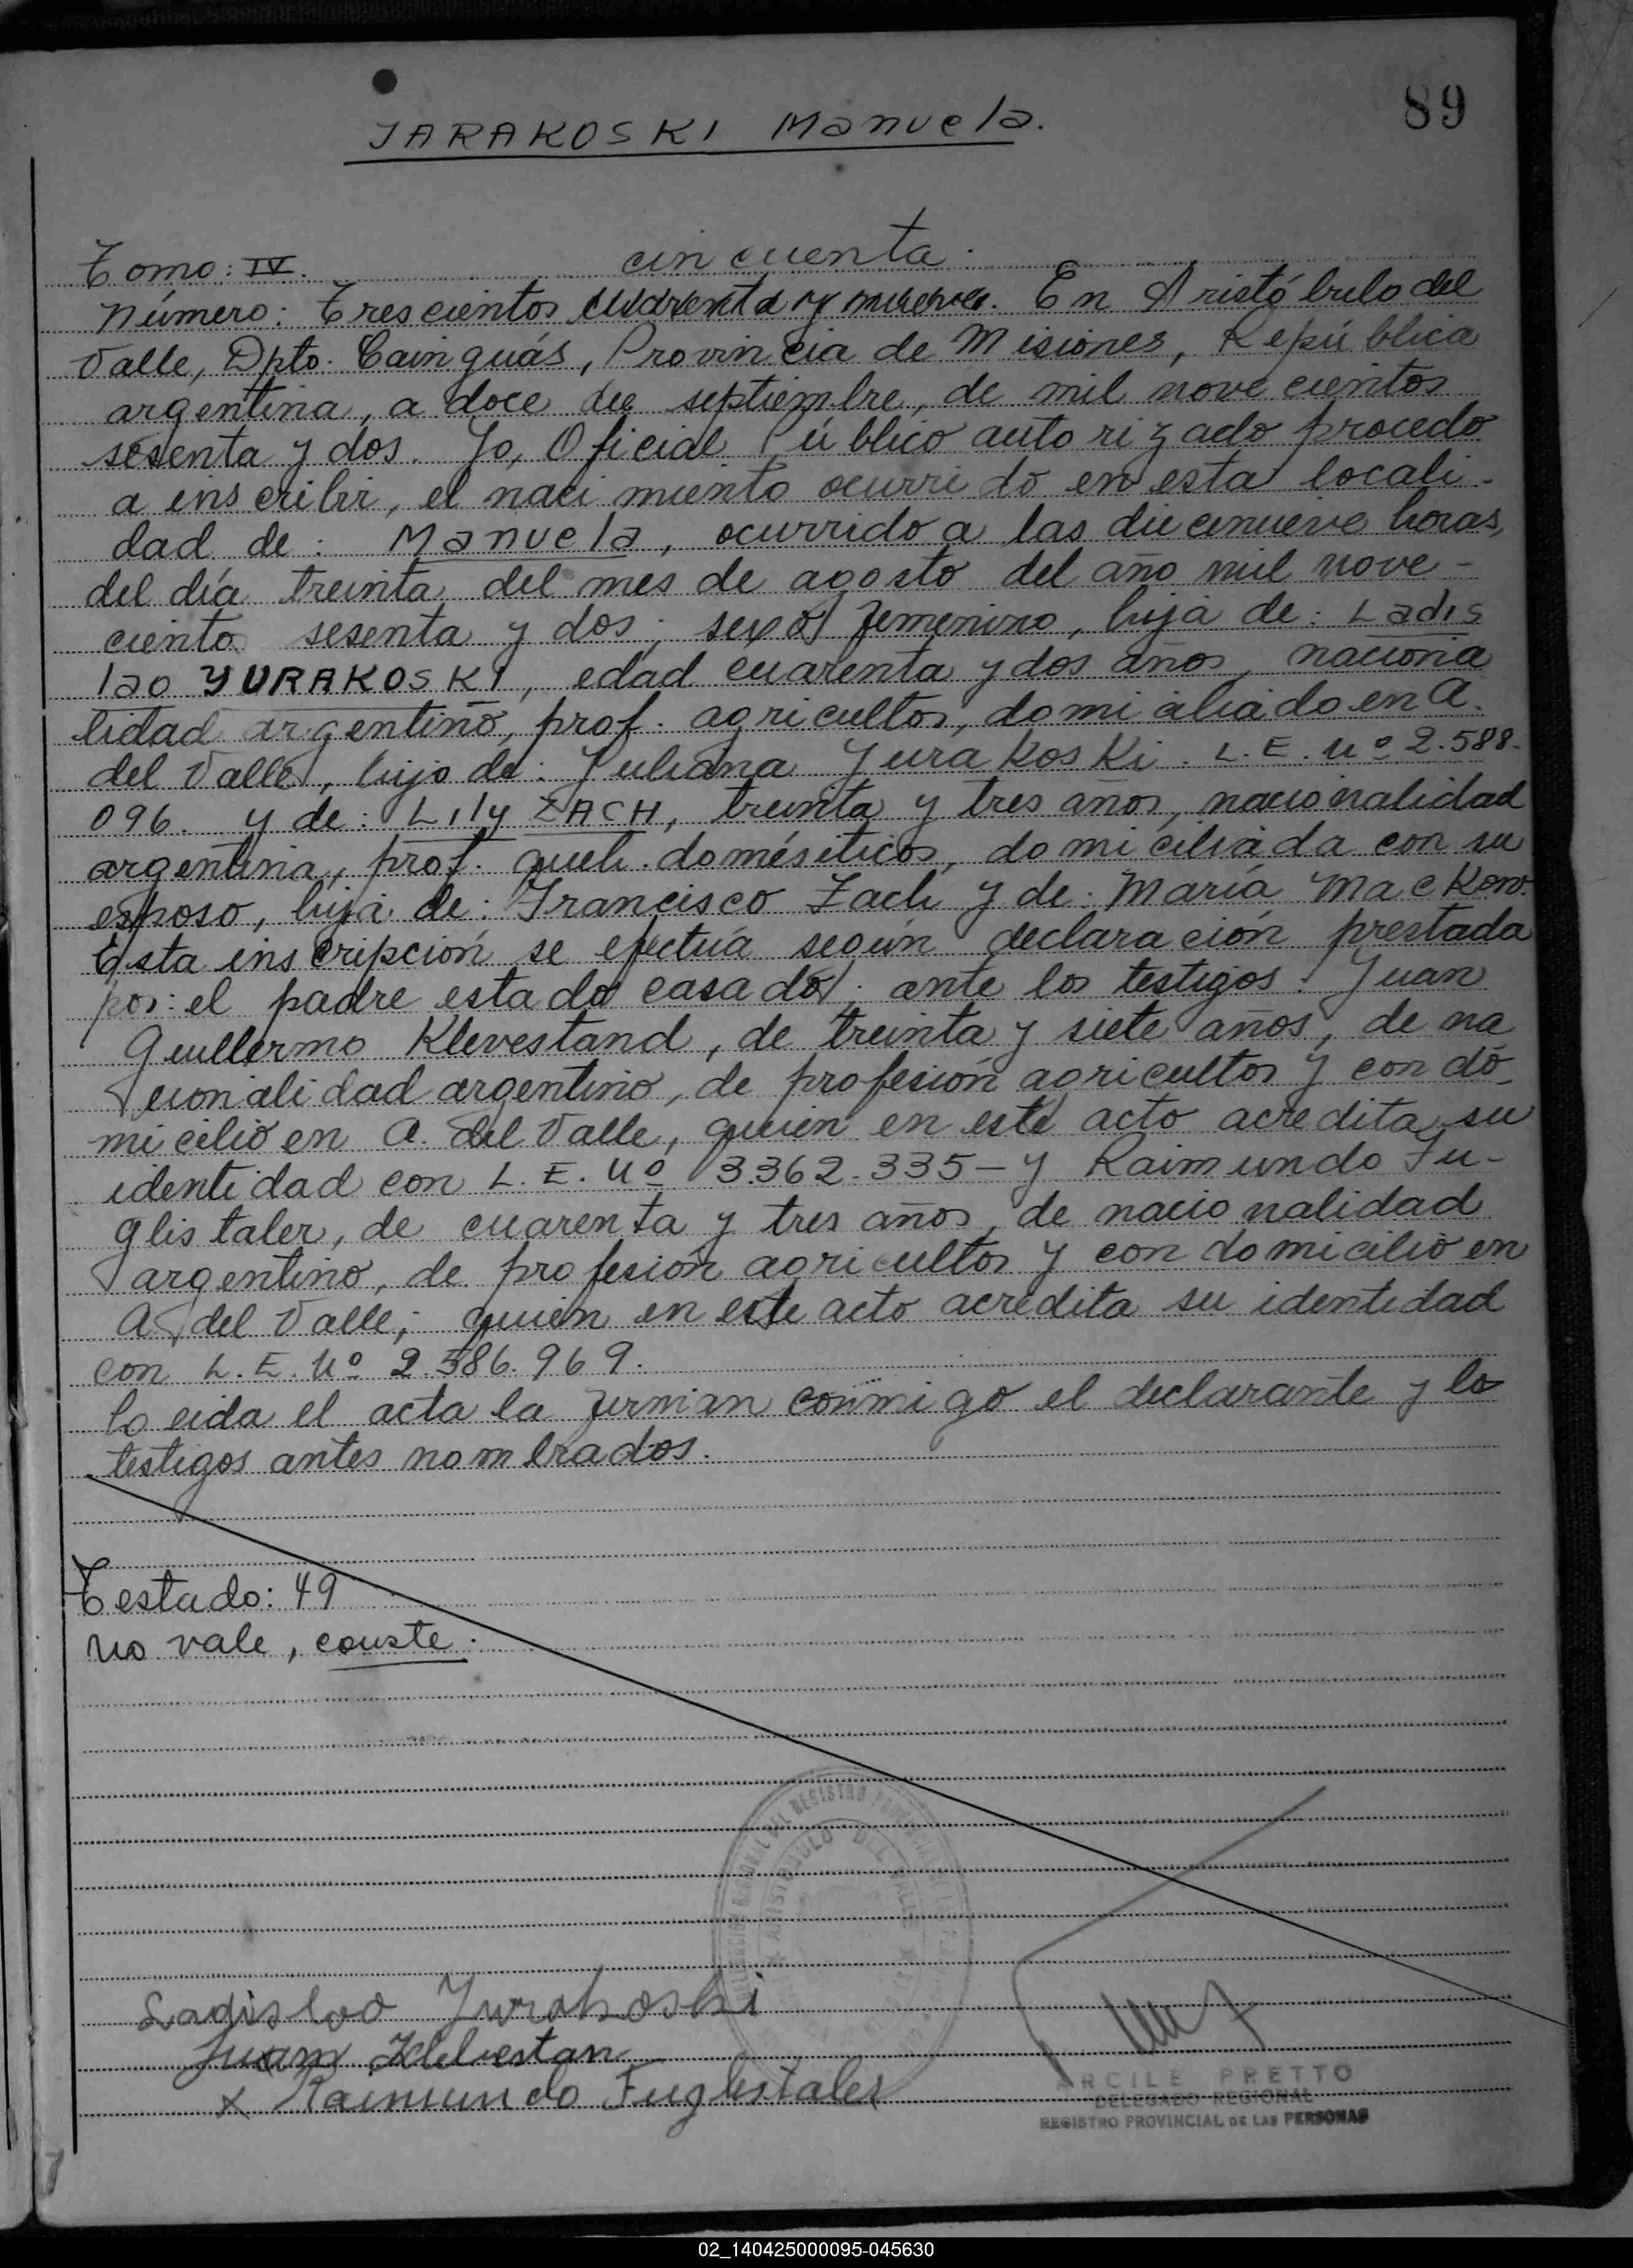 89
JARAKOSKI Manuela.
cincuenta.
Tomo: IV.
Número: Trescientos cuarenta y nueve. En Aristóbulo del
Valle, Dpto. Cainguás, Provincia de Misiones, República
argentina, a doce de septiembre, de mil novecientos
sesenta y dos. Yo, Oficial Público autorizado procedo
a inscribir, el nacimiento ocurrido en esta locali-
dad de: Manuela, ocurrido a las diecinueve horas,
del día treinta del mes de agosto del año mil nove-
ciento sesenta y dos; sexo femenino, hija de: Ladis
lao YURAKOSKI, edad cuarenta y dos años, naciona
lidad argentino, prof. agricultor, domiciliado en A.
del Valle, hijo de: Juliana Yurakoski. L.E. Nº 2.588.
096. y de: Lily ZACH, treinta y tres años, nacionalidad
argentina, prof. queh. doméseticos, domiciliada con su
esposo, hija de: Francisco Zach y de: María Mackow.
Esta inscripción se efectúa según declaración prestada
por: el padre estado casado; ante los testigos: Juan
Guillermo Klevestand, de treinta y siete años, de na
cionalidad argentino, de profesión agricultor y con do-
micilio en A. del Valle, quien en este acto acredita su
identidad con L.E. Nº 3.362.335- y Raimundo Fu-
glistaler, de cuarenta y tres años, de nacionalidad
argentino, de profesión agricultor y con domicilio en
A. del Valle; quien en este acto acredita su identidad
con L.E. Nº 2.586.969.
Loeida el acta la firman conmigo el declarante y lo
testigos antes nombrados.
Testado: 49
no vale, conste.
ARISTOBULO DEL VALLE
Ladislao Yurakoski
Juan Klebestan
x Raimundo Fuglistaler
ARCILE PRETTO
DELEGADO REGIONAL
REGISTRO PROVINCIAL DE LAS PERSONAS
02_140425000095-045630